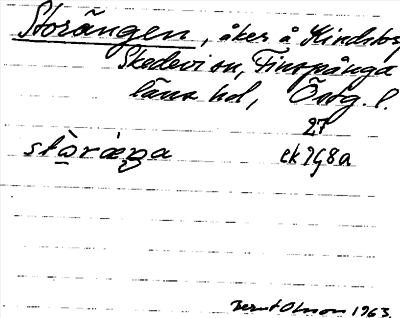 Storängen, åker å Kindstorp,
Skedevi sn, Finspånga
läns hd, Östg. l.
27
ek 7G8a
Bernt Olsson 1963.